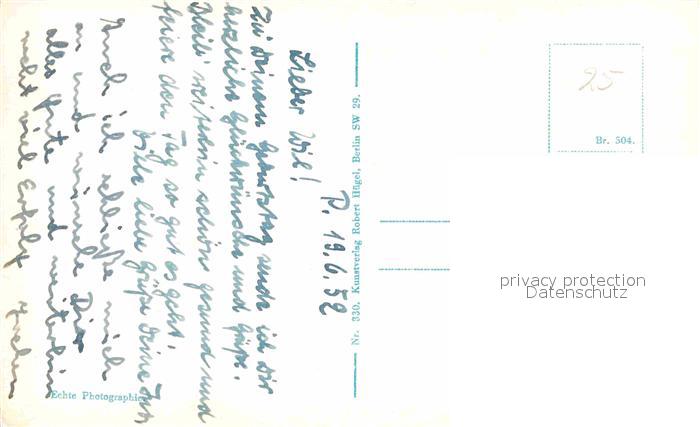 P. 19.6.52
Lieber Wil!
Zu deinem Geburtstag sende ich dir
herzliche Glückwünsche und Grüße.
Bleib weiterhin schön gesund und
feiere den Tag so gut es geht.
Viele liebe Grüße Deine
Auch ich schließe mich
an und wünsche Dir
alles Gute und weiterhin
recht viel Erfolg
Nr. 330. Kunstverlag Robert Hügel, Berlin SW 29.
25
Br. 504.
Echte Photographie
privacy protection
Datenschutz